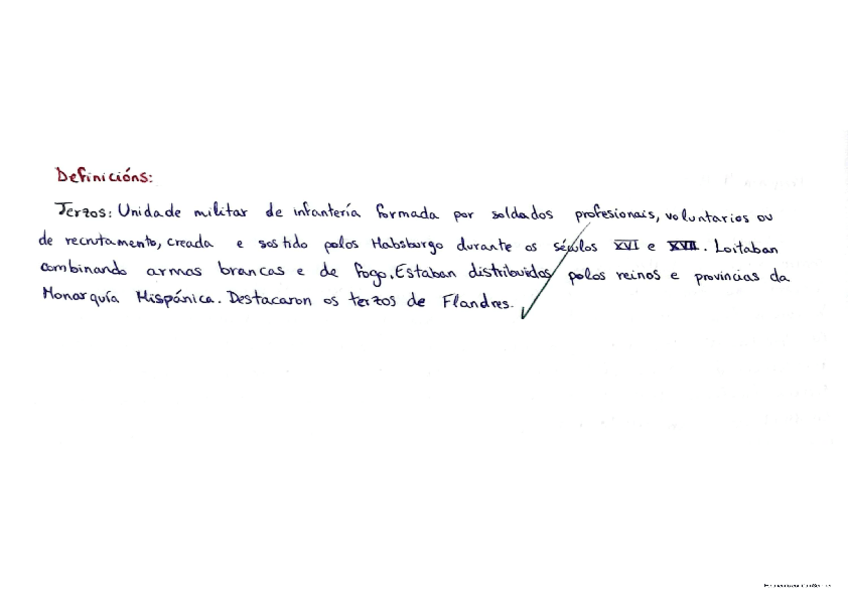 Definicións:
Terzos: Unidade militar de infantería formada por soldados profesionais, voluntarios ou
de recrutamento, creada e sostido polos Habsburgo durante os séculos XVI e XVII. Loitaban
combinando armas brancas e de fogo. Estaban distribuidos polos reinos e provincias da
Monarquía Hispánica. Destacaron os terzos de Flandres.